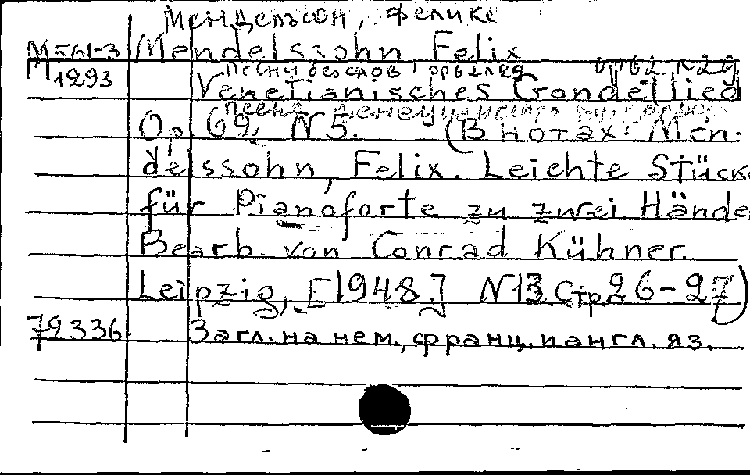 Мендельсон, Феликс
М561-3 Mendelssohn Felix
М1293 Песни без слов
Venetianisches Gondellied
Песня венецианского
Op. 62, N 5. (В нотах: Men-
delssohn, Felix. Leichte Stücke
für Pianoforte zu zwei Hände
Bearb. von Conrad Kühner.
Leipzig, [1948.] N 13. Стр. 26-27)
72336 Загл. на нем., франц. и англ. яз.